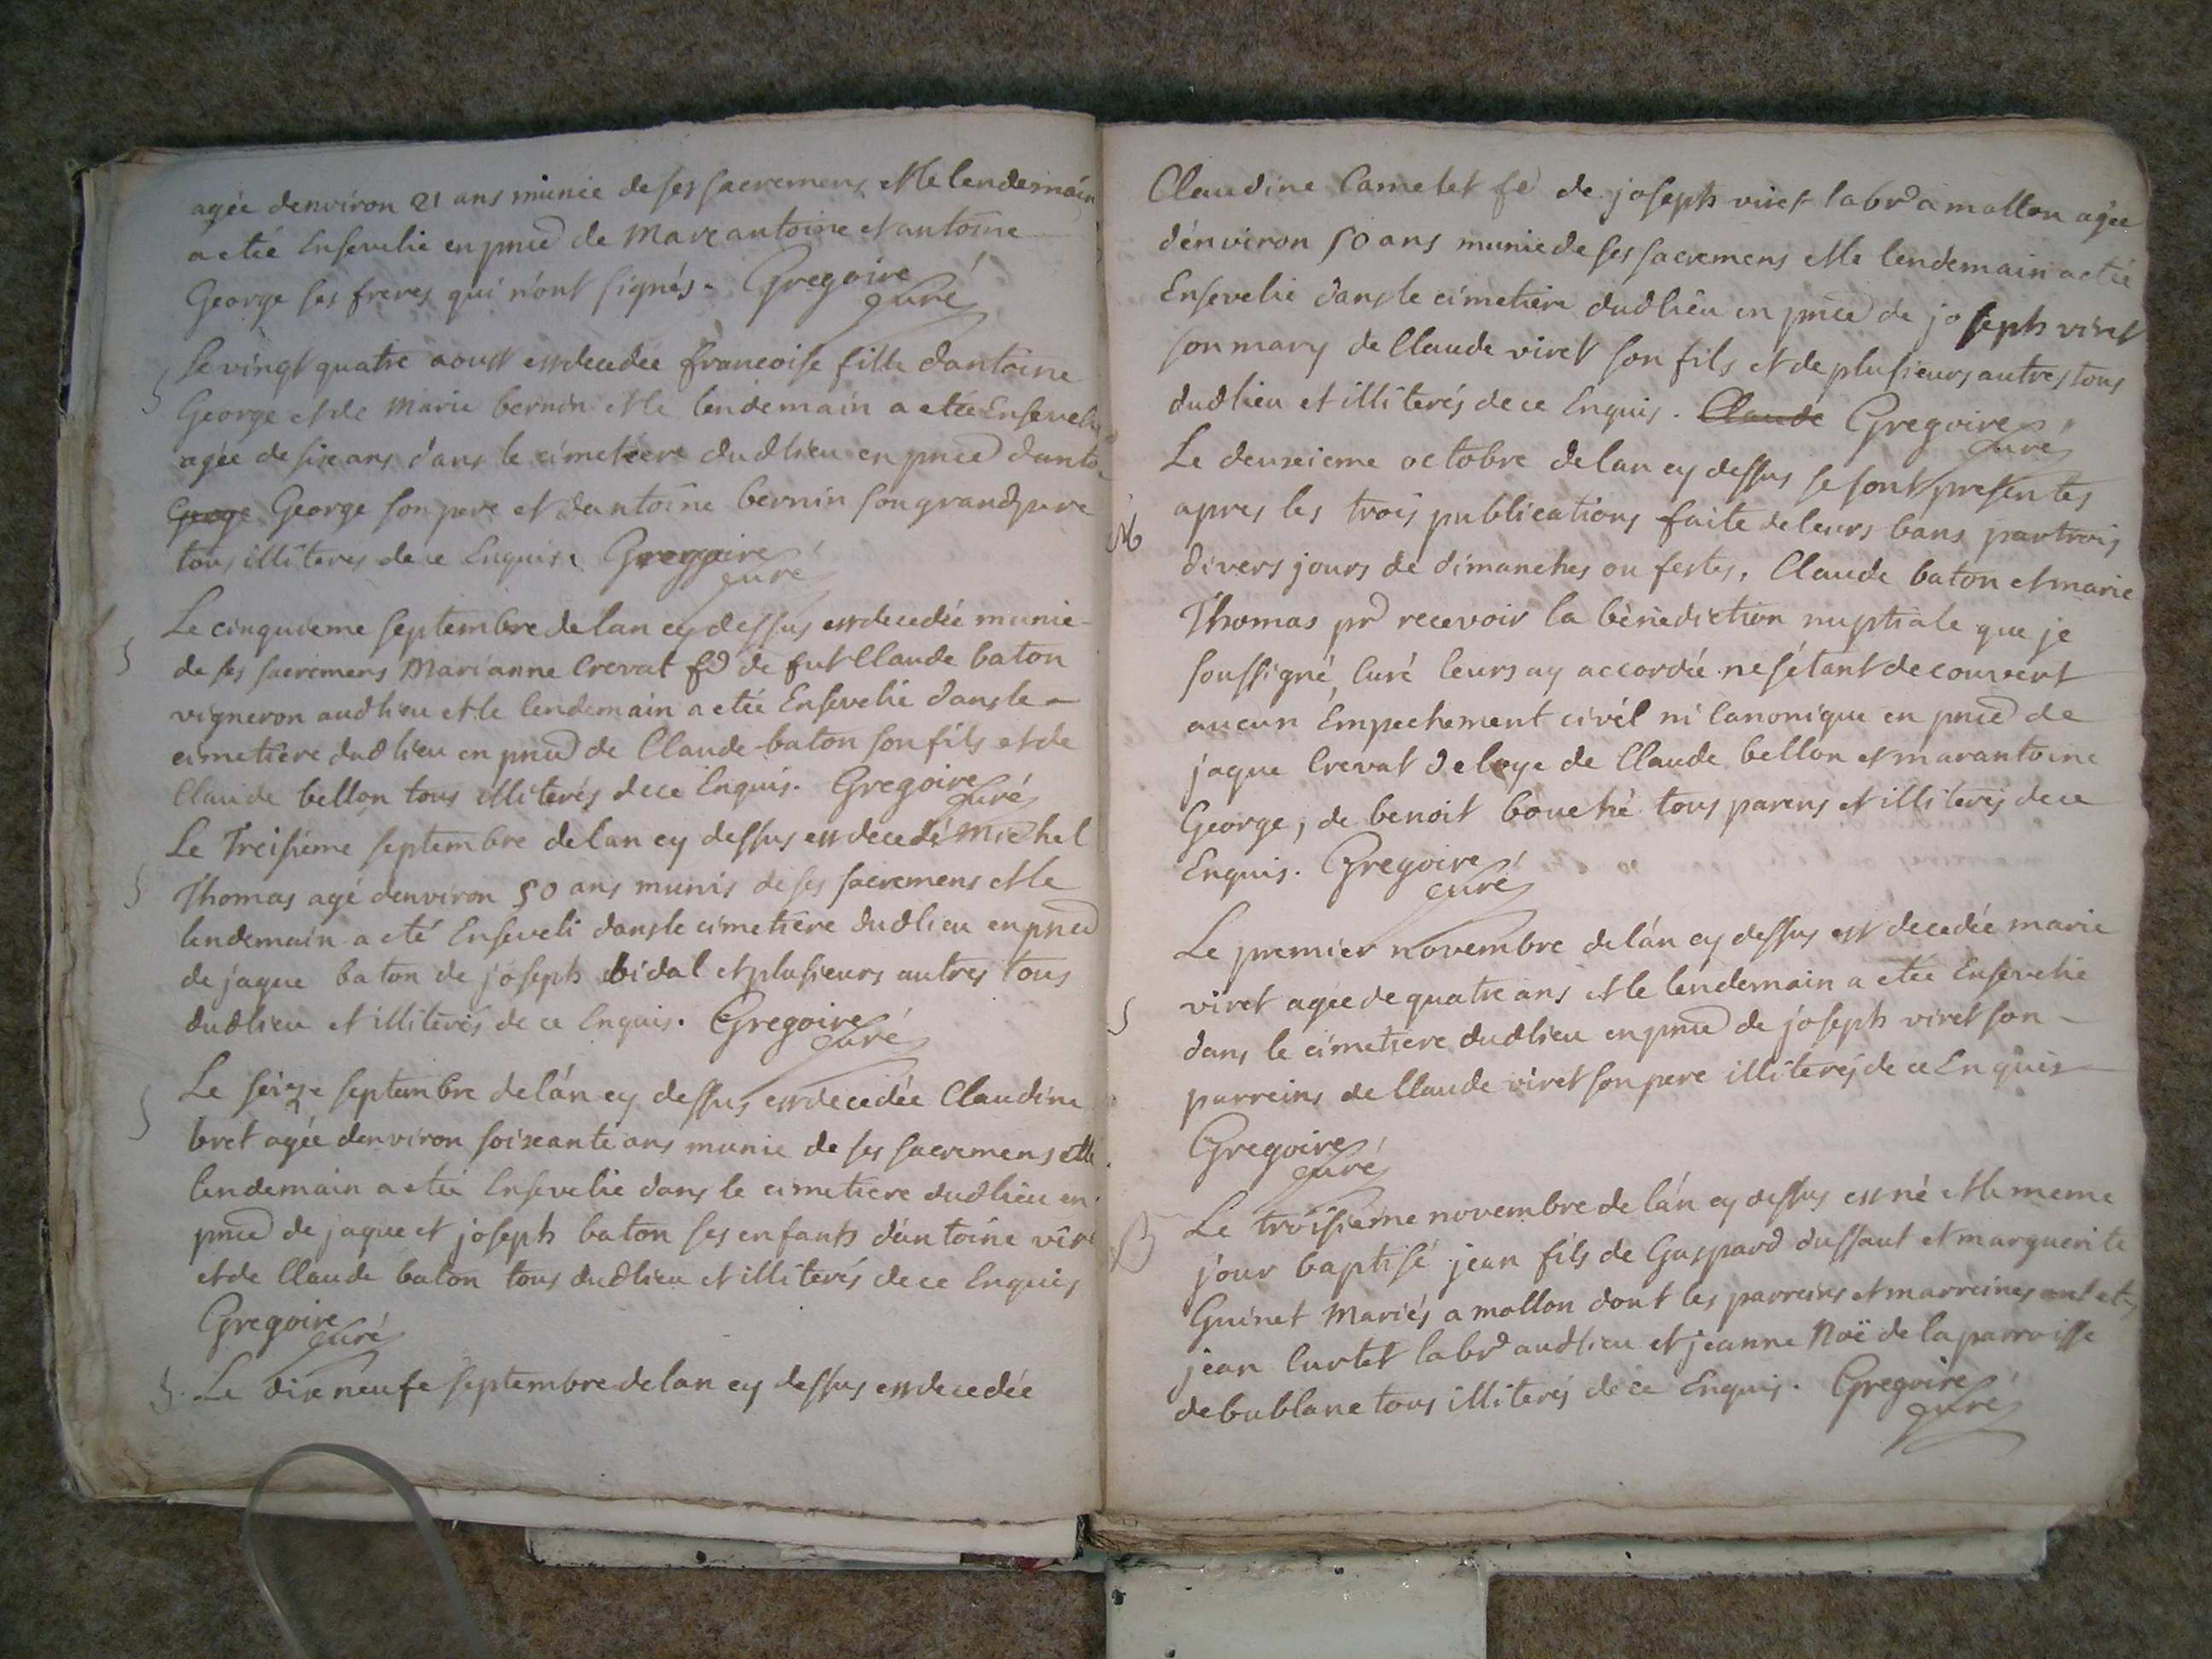 agée denviron 21 ans munie de ses sacremens et le lendemain
a etée Ensevelie en pnce de Marc antoine et antoine
George ses freres qui n'ont signés. Gregoire
curé
Le vingt quatre aoust est decedee francoise fille dantoine
George et de Marie bernin et le lendemain a etée Ensevelie
agée de six ans dans le cimetiere dudlieu en pnce danto
George George son pere et dantoine bernin son grand pere
tous illiteres de ce Enquis. Gregoire
curé
Le cinquieme septembre de lan cy dessus est decedée munie
de ses sacremens Marianne Crevat fe de fut Claude baton
vigneron audlieu et le lendemain a etée Ensevelie dans le
cimetiere dudlieu en pnce de Claude baton son fils et de
Claude bellon tous illiterés de ce Enquis. Gregoire
curé
Le Treisieme septembre de lan cy dessus est decedé Michel
Thomas agé denviron 50 ans munis de ses sacremens et le
lendemain a eté Enseveli dans le cimetiere dudlieu en pnce
de jaque baton de joseph bidal et plusieurs autres tous
dudlieu et illiterés de ce Enquis. Gregoire
curé
Le seize septembre de lán cy dessus est decedée Claudine
bret agée denviron soixante ans munie de ses sacremens et le
lendemain a etée Ensevelie dans le cimetiere dudlieu en
pnce de jaque et joseph baton ses enfants d'antoine viret
et de Claude baton tous dudlieu et illiterés de ce Enquis
Gregoire
curé
Le dix neufe septembre de lan cy dessus est decedée
Claudine Camelet fe de joseph viret labr a mollon agée
d'environ 50 ans munie de ses sacremens et le lendemain a etée
Ensevelie dans le cimetiere dudlieu en pnce de joseph viret
son mary de Claude viret son fils et de plusieurs autres tous
dudlieu et illiterés de ce Enquis. Claude Gregoire
curé
Le deuxieme octobre de lan cy dessus se sont presentes
M
apres les trois publications faite de leurs bans par trois
divers jours de dimanches ou festes, Claude baton et marie
Thomas pr recevoir la bénédiction nuptiale que je
soussigné, Curé leurs ay accordée ne s'étant decouvert
aucun Empechement civil ni Canonique en pnce de
jaque Crevat de loye de Claude bellon et marantoine
George, de benoit bouché tous parens et illiterés de ce
Enquis. Gregoire
curé
Le premier novembre de lán cy dessus est decedée marie
viret agée de quatre ans et le lendemain a etée Ensevelie
dans le cimetiere dudlieu en pnce de joseph viret son
parreins de Claude viret son pere illiterés de ce Enquis
Gregoire
curé
B
Le troisieme novembre de lán cy dessus est né et le meme
jour baptisé jean fils de Gaspard dussaut et marguerite
Guinet Mariés a mollon dont les parreins et marreines ont eté
jean Curtet labr audlieu et jeanne Noë de la parroisse
de bublane tous illiterés de ce Enquis. Gregoire
curé